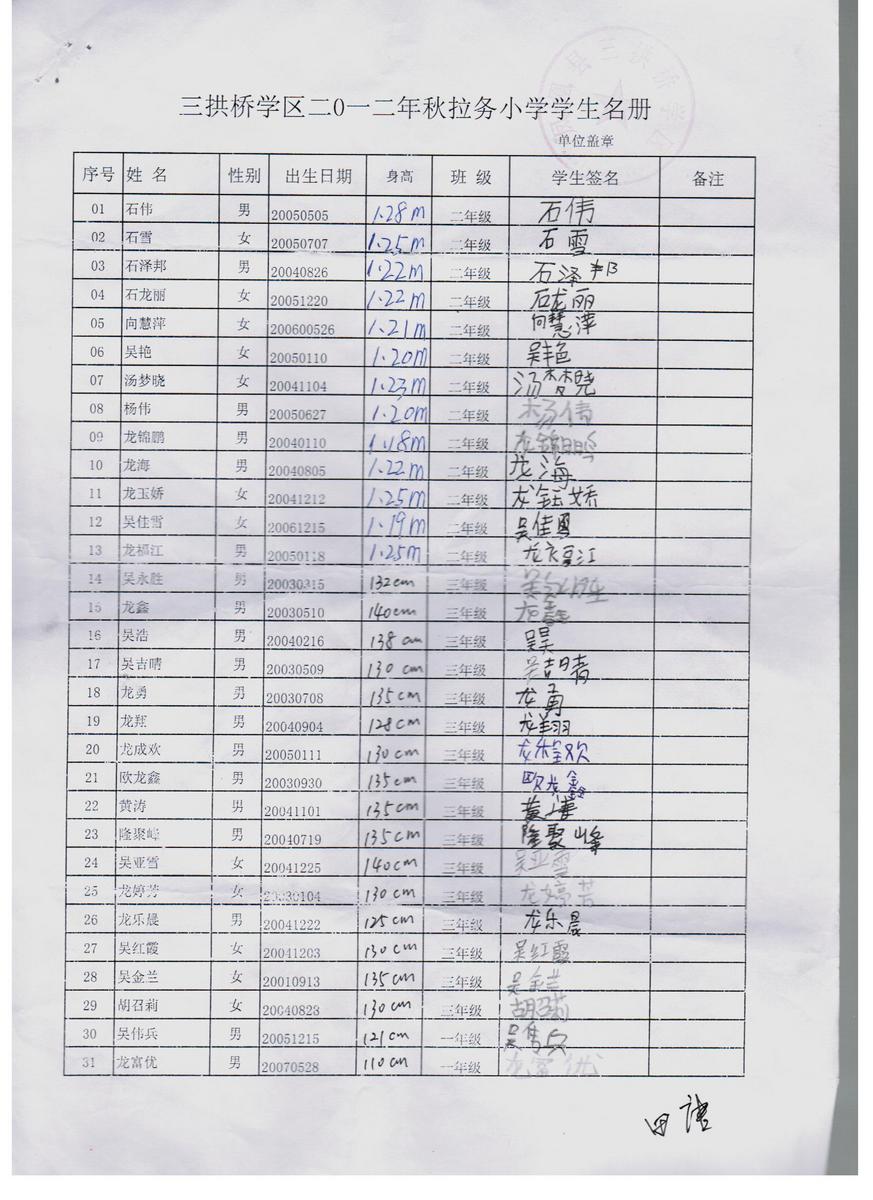 三拱桥学区二0一二年秋拉务小学学生名册
单位盖章
序号 姓 名 性别 出生日期 身高 班 级 学生签名 备注
01 石伟 男 20050505 1.28m 二年级 石伟
02 石雪 女 20050707 1.25m 二年级 石雪
03 石泽邦 男 20040826 1.22m 二年级 石泽邦
04 石龙丽 女 20051220 1.22m 二年级 石龙丽
05 向慧萍 女 200600526 1.21m 二年级 向慧萍
06 吴艳 女 20050110 1.20m 二年级 吴艳
07 汤梦晓 女 20041104 1.23m 二年级 汤梦晓
08 杨伟 男 20050627 1.20m 二年级 杨伟
09 龙锦鹏 男 20040110 1.18m 二年级 龙锦鹏
10 龙海 男 20040805 1.22m 二年级 龙海
11 龙玉娇 女 20041212 1.25m 二年级 龙钰娇
12 吴佳雪 女 20061215 1.19m 二年级 吴佳雪
13 龙福江 男 20050118 1.25m 二年级 龙福江
14 吴永胜 男 20030315 132cm 三年级
15 龙鑫 男 20030510 140cm 三年级 龙鑫
16 吴浩 男 20040216 138cm 三年级
17 吴吉晴 男 20030509 130cm 三年级 吴吉晴
18 龙勇 男 20030708 135cm 三年级 龙勇
19 龙翔 男 20040904 128cm 三年级 龙翔
20 龙成欢 男 20050111 130cm 三年级
21 欧龙鑫 男 20030930 135cm 三年级 欧龙鑫
22 黄涛 男 20041101 135cm 三年级 黄涛
23 隆聚峰 男 20040719 135cm 三年级 隆聚峰
24 吴亚雪 女 20041225 140cm 三年级 吴亚雪
25 龙婷芳 女 20030104 130cm 三年级 龙婷芳
26 龙乐晨 男 20041222 125cm 三年级 龙乐晨
27 吴红霞 女 20041203 130cm 三年级 吴红霞
28 吴金兰 女 20010913 135cm 三年级 吴金兰
29 胡召莉 女 20040823 130cm 三年级 胡召莉
30 吴伟兵 男 20051215 121cm 一年级 吴伟兵
31 龙富优 男 20070528 110cm 一年级 龙富优